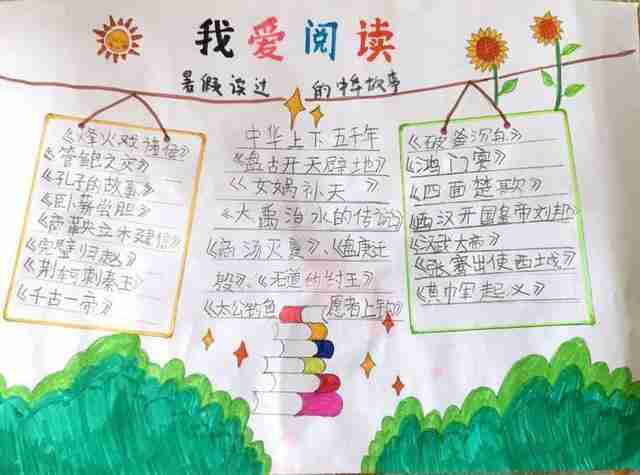 我爱阅读
暑假读过 的中华故事
《烽火戏诸侯》
《管鲍之交》
《孔子的故事》
《卧薪尝胆》
《商鞅立木建信》
《完璧归赵》
《荆轲刺秦王》
《千古一帝》
中华上下五千年
《盘古开天辟地》
《女娲补天》
《大禹治水的传说》
《商汤灭夏》、《盘庚迁
殷》、《无道的纣王》
《太公钓鱼 愿者上钩》
《破釜沉舟》
《鸿门宴》
《四面楚歌》
《西汉开国皇帝刘邦》
《汉武大帝》
《张骞出使西域》
《黄巾军起义》